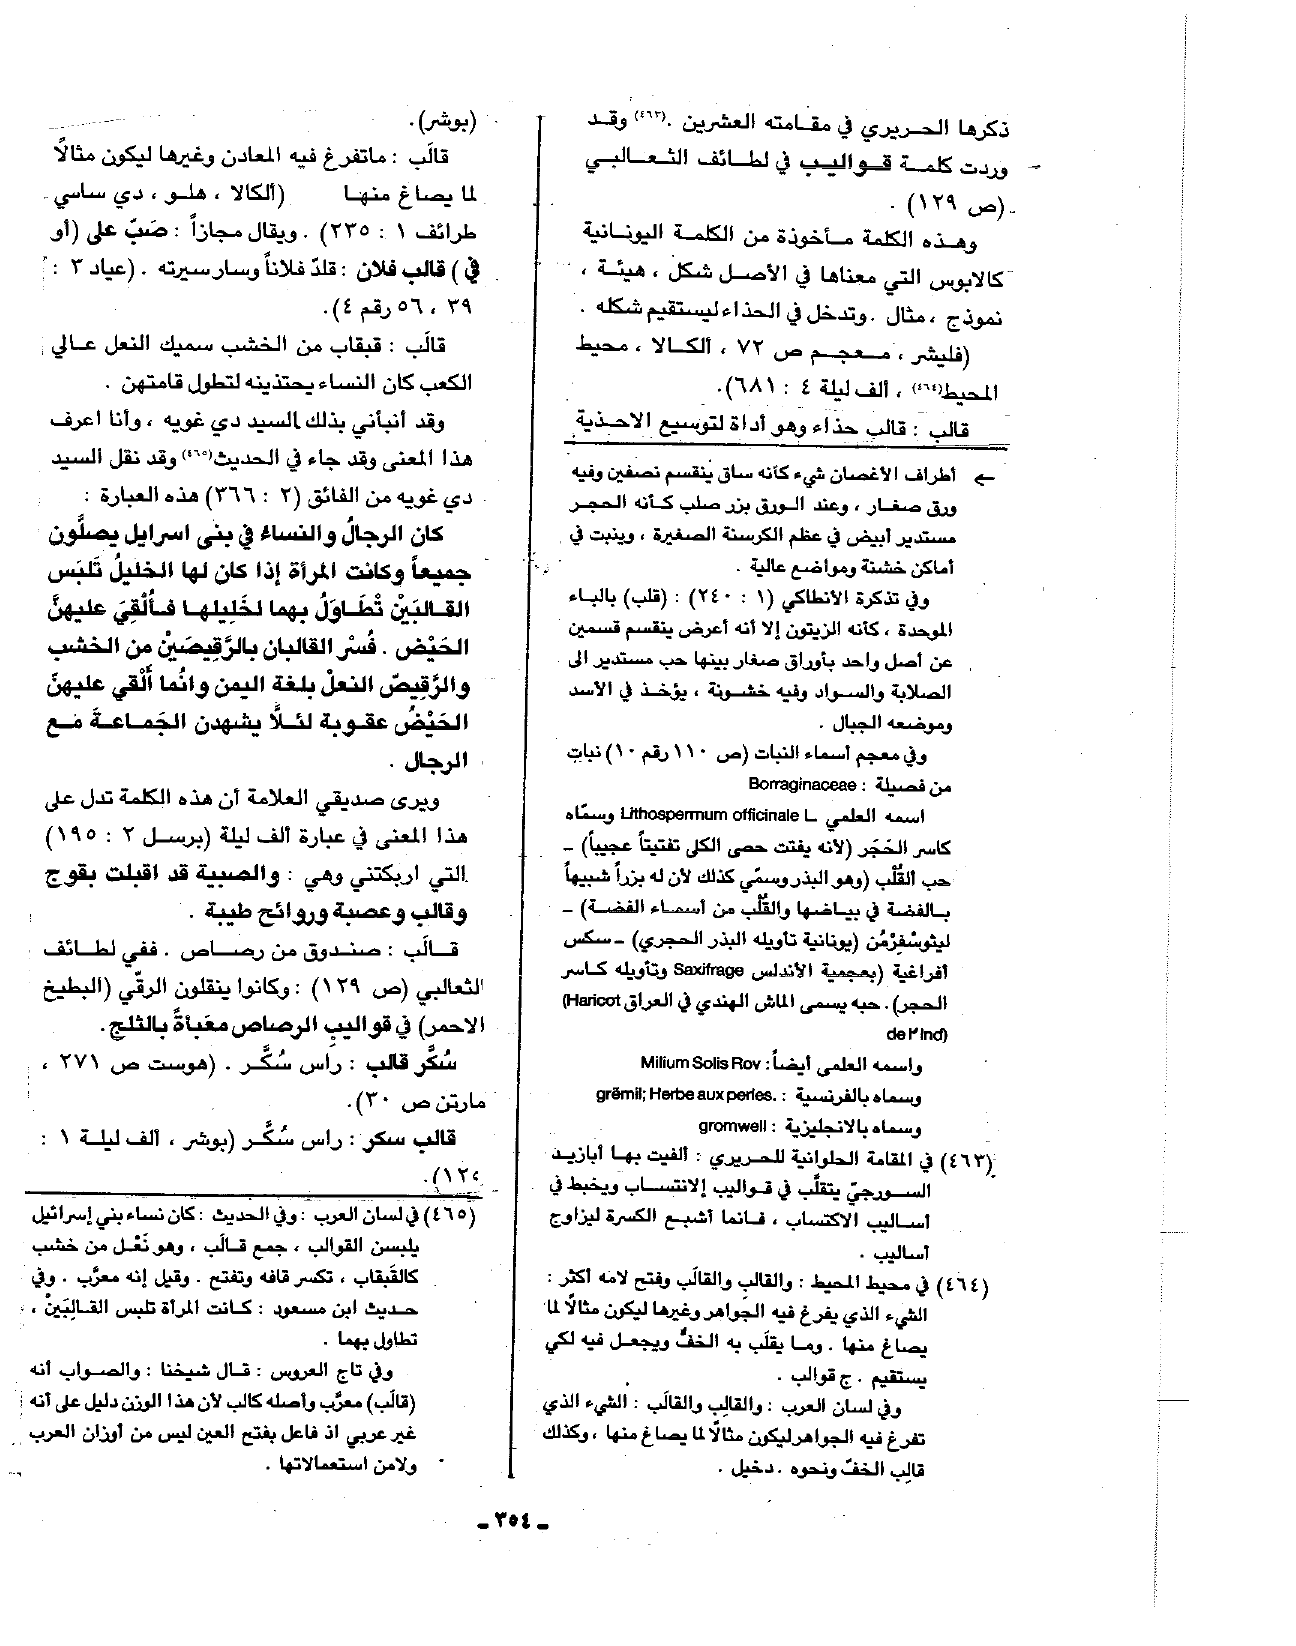 ذكرها الحريري في مقامته العشرين .(٤٦٣) وقد
وردت كلمة قواليب في لطائف الثعالبي
(ص ١٢٩) .
وهذه الكلمة مأخوذة من الكلمة اليونانية
كالابوس التي معناها في الأصل شكل ، هيئة ،
نموذج ، مثال . وتدخل في الحذاء ليستقيم شكله .
(فليشر ، معجم ص ٧٢ ، ألكالا ، محيط
المحيط(٤٦٤) ، ألف ليلة ٤ : ٦٨١).
قالب : قالب حذاء وهو أداة لتوسيع الاحذية
(بوشر).
قالَب : ماتفرغ فيه المعادن وغيرها ليكون مثالاً
لما يصاغ منها (ألكالا ، هلو ، دي ساسي
طرائف ١ : ٢٣٥) . ويقال مجازاً : صَبّ على (أو
في) قالب فلان : قلدّ فلاناً وسار سيرته . (عباد ٣ :
٣٩ ، ٥٦ رقم ٤).
قالَب : قبقاب من الخشب سميك النعل عالي
الكعب كان النساء يحتذينه لتطول قامتهن .
وقد أنبأني بذلك السيد دي غويه ، وأنا اعرف
هذا المعنى وقد جاء في الحديث(٤٦٥) وقد نقل السيد
دي غويه من الفائق (٢ : ٣٦٦) هذه العبارة :
كان الرجالُ والنساءُ في بنى اسرايل يصلُّون
جميعاً وكانت المرأة إذا كان لها الخليلُ تَلبَس
القالبَيْن تُطَاوَلُ بهما لخَلِيلِها فأُلْقِيَ عليهنَّ
الحَيْض . فُسْر القالبان بالرَّقِيصَيْنْ من الخشب
والرَّقِيصُ النعلْ بلغة اليمن وانُما أُلْقي عليهنَّ
الحَيْضُ عقوبة لئلاَّ يشهدن الجَماعةَ مَع
الرجال .
ويرى صديقي العلامة أن هذه الكلمة تدل على
هذا المعنى في عبارة ألف ليلة (برسل ٢ : ١٩٥)
التي اربكتني وهي : والصبية قد اقبلت بقوج
وقالب وعصبة وروائح طيبة .
قالَب : صندوق من رصاص . ففي لطائف
الثعالبي (ص ١٢٩) : وكانوا ينقلون الرقّي (البطيخ
الاحمر) في قواليبِ الرصاص معَبأةً بالثلج.
سُكَّر قالب : راس سُكَّر . (هوست ص ٢٧١ ،
مارتن ص ٣٠).
قالب سكر : راس سُكَّر (بوشر ، ألف ليلة ١ :
١٢٤).
← أطراف الأغصان شيء كأنه ساق ينقسم نصفين وفيه
ورق صغار ، وعند الورق بزر صلب كأنه الحجر
مستدير أبيض في عظم الكرسنة الصغيرة ، وينبت في
أماكن خشنة ومواضع عالية .
وفي تذكرة الأنطاكي (١ : ٢٤٠) : (قلب) بالباء
الموحدة ، كأنه الزيتون إلا أنه أعرض ينقسم قسمين
عن أصل واحد بأوراق صغار بينها حب مستدير الى
الصلابة والسواد وفيه خشونة ، يؤخذ في الأسد
وموضعه الجبال .
وفي معجم أسماء النبات (ص ١١٠ رقم ١٠) نبات
من فصيلة : Borraginaceae
اسمه العلمي Lithospermum officinale L وسمّاه
كاسر الحَجَر (لأنه يفتت حصى الكلى تفتيتاً عجيباً) –
حب القُلْب (وهو البذر وسمّي كذلك لأن له بزراً شبيهاً
بالفضة في بياضها والقُلْب من أسماء الفضة) –
ليثوسْفِرْمُن (يونانية تأويله البذر الحجري) – سكس
أفراغية (بعجمية الأندلس Saxifrage وتأويله كاسر
الحجر). حبه يسمى الماش الهندي في العراق (Haricot
de l'Ind)
واسمه العلمي أيضاً : Milium Solis Rov
وسماه بالفرنسية : .grēmil; Herbe aux perles
وسماه بالانجليزية : gromwell
(٤٦٣) في المقامة الحلوانية للحريري : ألفيت بها أبازيد
السورجيّ يتقلَّب في قواليب الانتساب ويخبط في
أساليب الاكتساب ، فانما أشبع الكسرة ليزاوج
أساليب .
(٤٦٤) في محيط المحيط : والقالب والقالَب وفتح لامه أكثر :
الشيء الذي يفرغ فيه الجواهر وغيرها ليكون مثالًا لما
يصاغ منها . وما يقلَب به الخفُّ ويجعل فيه لكي
يستقيم . ج قوالب .
وفي لسان العرب : والقالِب والقالَب : الشيء الذي
تفرغ فيه الجواهر ليكون مثالًا لما يصاغ منها ، وكذلك
قالِب الخفّ ونحوه . دخيل .
(٤٦٥) في لسان العرب : وفي الحديث : كان نساء بني إسرائيل
يلبسن القوالب ، جمع قالَب ، وهو نَعْل من خشب
كالقَبقاب ، تكسر قافه وتفتح . وقيل إنه معرَّب . وفي
حديث ابن مسعود : كانت المرأة تلبس القالِبَيْنْ ،
تطاول بهما .
وفي تاج العروس : قال شيخنا : والصواب أنه
(قالَب) معرَّب وأصله كالب لأن هذا الوزن دليل على أنه
غير عربي اذ فاعل بفتح العين ليس من أوزان العرب
ولامن استعمالاتها .
ـ ٣٥٤ ـ